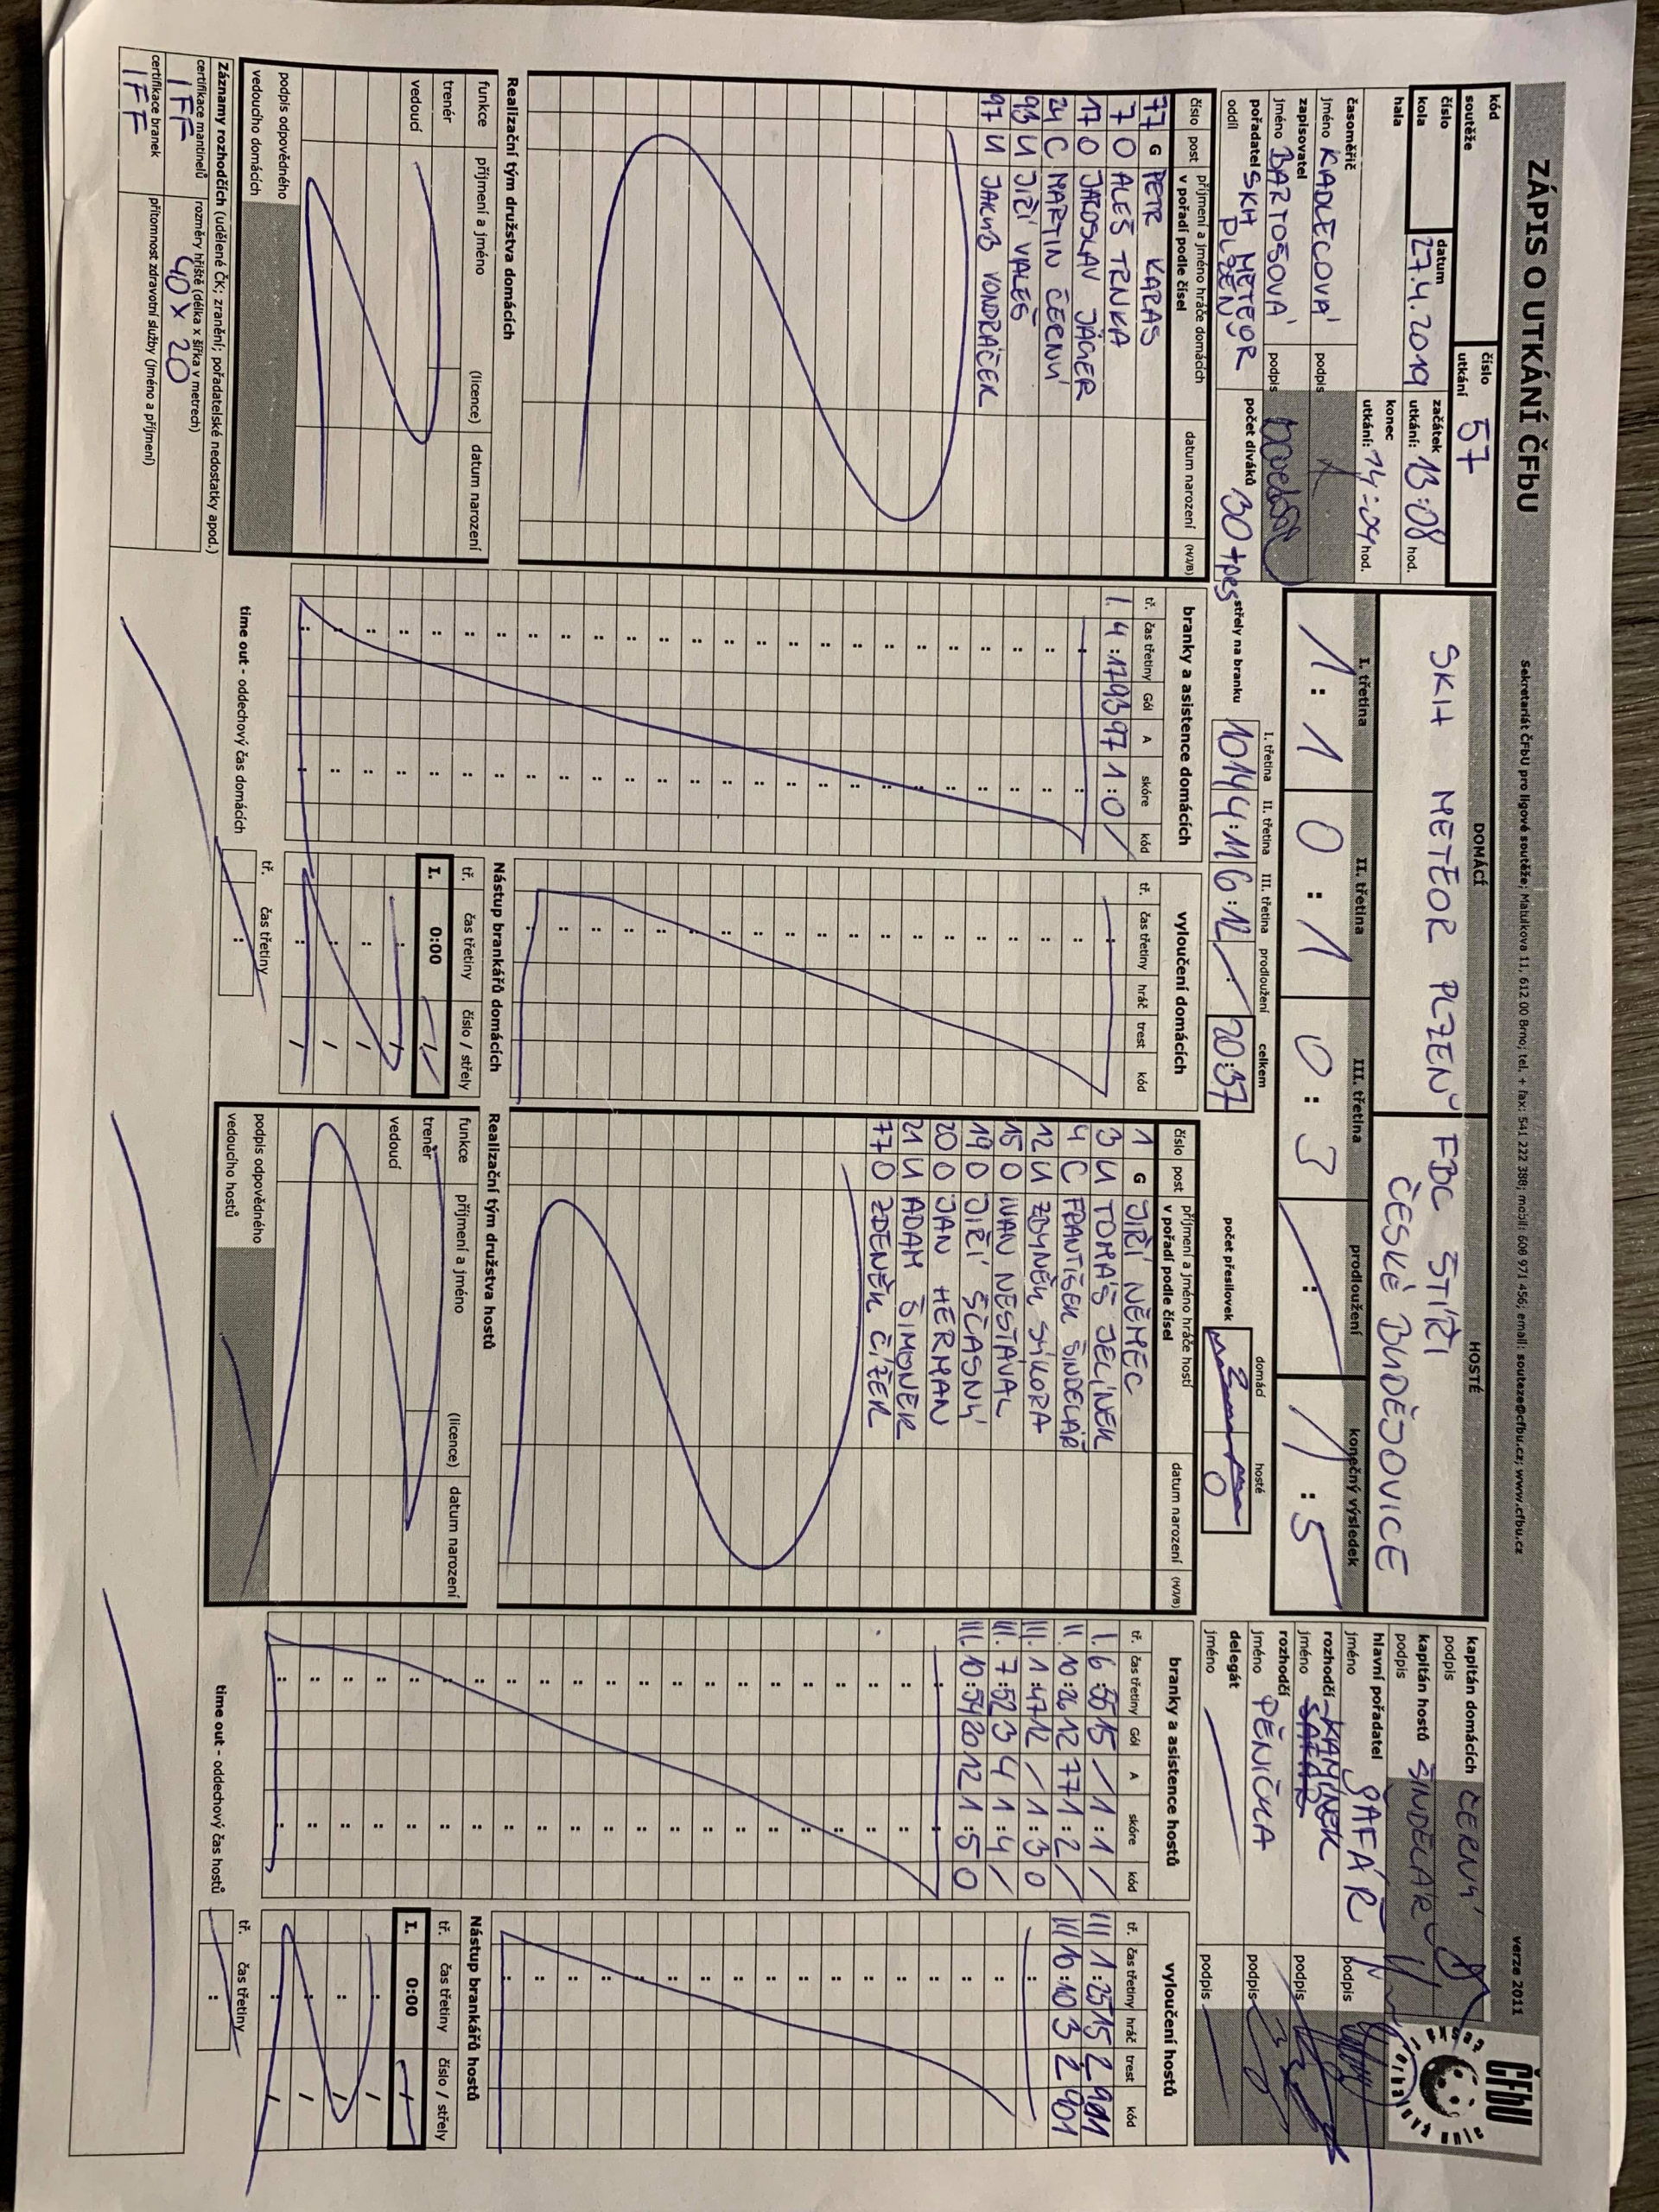 ZÁPIS O UTKÁNÍ ČFbU
Sekretariát ČFbU pro ligové soutěže; Matulkova 11, 612 00 Brno; tel. + fax: 541 222 388; mobil: 608 971 456; email: souteze@cfbu.cz; www.cfbu.cz
verze 2011
ČFbU
kód soutěže
číslo utkání 57
číslo kola
datum 27.4.2019
začátek utkání: 13:08 hod.
hala
konec utkání: 14:09 hod.
časoměřič
jméno KADLECOVÁ podpis
zapisovatel
jméno BARTOŠOVÁ podpis
pořadatel oddíl SKH METEOR PLZEŇ
počet diváků 30 + pes
DOMÁCÍ HOSTÉ
SKH METEOR PLZEŇ FBC ŠTÍŘI
ČESKÉ BUDĚJOVICE
I. třetina II. třetina III. třetina prodloužení konečný výsledek
1 : 1 0 : 1 0 : 3 : 1 : 5
střely na branku I. třetina II. třetina III. třetina prodloužení celkem
10:14 4:11 6:12 : 20:37
počet přesilovek domácí hosté
2 0
kapitán domácích
podpis ČERNÝ
kapitán hostů
podpis ŠINDELÁŘ
hlavní pořadatel
jméno ŠAFÁŘ podpis
rozhodčí KAMÍNEK
jméno ŠAFÁŘ podpis
rozhodčí
jméno PĚNIČKA podpis
delegát
jméno podpis
číslo post příjmení a jméno hráče domácích v pořadí podle čísel datum narození (H/J/B)
77 G PETR KARAS
7 O ALEŠ TRNKA
17 O JAROSLAV JÄGER
24 C MARTIN ČERNÝ
93 U JIŘÍ VALEŠ
97 U JAKUB VONDRÁČEK
Realizační tým družstva domácích
funkce příjmení a jméno (licence) datum narození
trenér
vedoucí
podpis odpovědného vedoucího domácích
branky a asistence domácích
tř. čas třetiny Gól A skóre kód
I. 4:17 93 97 1:0 /
vyloučení domácích
tř. čas třetiny hráč trest kód
Nástup brankářů domácích
tř. čas třetiny číslo / střely
I. 0:00
time out - oddechový čas domácích
tř. čas třetiny
číslo post příjmení a jméno hráče hostí v pořadí podle čísel datum narození (H/J/B)
1 G JIŘÍ NĚMEC
3 U TOMÁŠ JELÍNEK
4 C FRANTIŠEK ŠINDELÁŘ
12 U ZBYNĚK SÝKORA
15 O IVAN NESTÁVAL
19 O JIŘÍ ŠČASNÝ
20 O JAN HERMAN
21 U ADAM ŠIMONER
77 O ZDENĚK ČÍŽEK
Realizační tým družstva hostů
funkce příjmení a jméno (licence) datum narození
trenér
vedoucí
podpis odpovědného vedoucího hostů
branky a asistence hostů
tř. čas třetiny Gól A skóre kód
I. 6:55 15 / 1:1 /
II. 10:26 12 77 1:2 /
III. 1:47 12 / 1:3 0
III. 7:52 3 4 1:4 /
III. 10:54 20 12 1:5 0
vyloučení hostů
tř. čas třetiny hráč trest kód
III 1:25 15 2 901
III 10:10 3 2 901
Nástup brankářů hostů
tř. čas třetiny číslo / střely
I. 0:00
time out - oddechový čas hostů
tř. čas třetiny
Záznamy rozhodčích (udělené ČK; zranění; pořadatelské nedostatky apod.)
certifikace mantinelů IFF
rozměry hřiště (délka x šířka v metrech) 40 x 20
certifikace branek IFF
přítomnost zdravotní služby (jméno a příjmení)